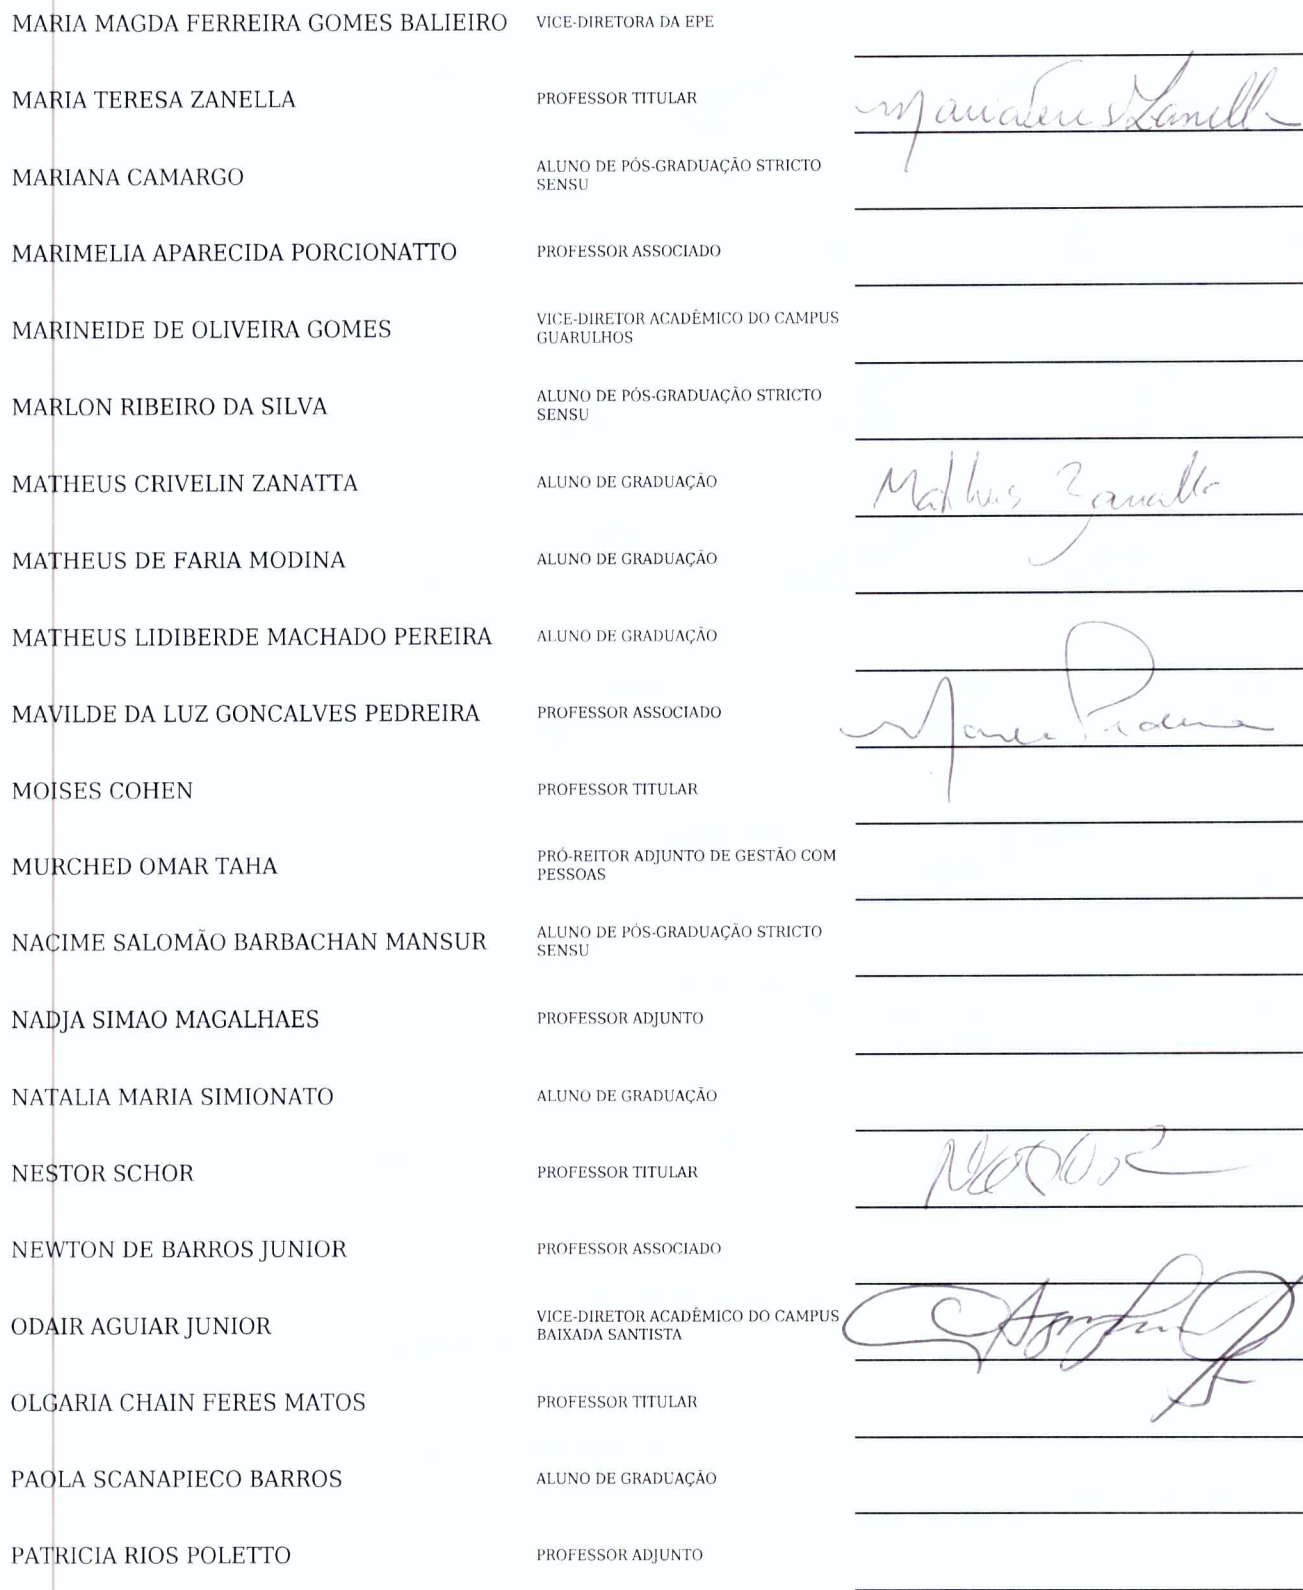 MARIA MAGDA FERREIRA GOMES BALIEIRO VICE-DIRETORA DA EPE
MARIA TERESA ZANELLA PROFESSOR TITULAR
MARIANA CAMARGO ALUNO DE PÓS-GRADUAÇÃO STRICTO
SENSU
MARIMELIA APARECIDA PORCIONATTO PROFESSOR ASSOCIADO
MARINEIDE DE OLIVEIRA GOMES VICE-DIRETOR ACADÊMICO DO CAMPUS
GUARULHOS
MARLON RIBEIRO DA SILVA ALUNO DE PÓS-GRADUAÇÃO STRICTO
SENSU
MATHEUS CRIVELIN ZANATTA ALUNO DE GRADUAÇÃO Matheus Zanatta
MATHEUS DE FARIA MODINA ALUNO DE GRADUAÇÃO
MATHEUS LIDIBERDE MACHADO PEREIRA ALUNO DE GRADUAÇÃO
MAVILDE DA LUZ GONCALVES PEDREIRA PROFESSOR ASSOCIADO
MOISES COHEN PROFESSOR TITULAR
MURCHED OMAR TAHA PRÓ-REITOR ADJUNTO DE GESTÃO COM
PESSOAS
NACIME SALOMÃO BARBACHAN MANSUR ALUNO DE PÓS-GRADUAÇÃO STRICTO
SENSU
NADJA SIMAO MAGALHAES PROFESSOR ADJUNTO
NATALIA MARIA SIMIONATO ALUNO DE GRADUAÇÃO
NESTOR SCHOR PROFESSOR TITULAR
NEWTON DE BARROS JUNIOR PROFESSOR ASSOCIADO
ODAIR AGUIAR JUNIOR VICE-DIRETOR ACADÊMICO DO CAMPUS
BAIXADA SANTISTA
OLGARIA CHAIN FERES MATOS PROFESSOR TITULAR
PAOLA SCANAPIECO BARROS ALUNO DE GRADUAÇÃO
PATRICIA RIOS POLETTO PROFESSOR ADJUNTO